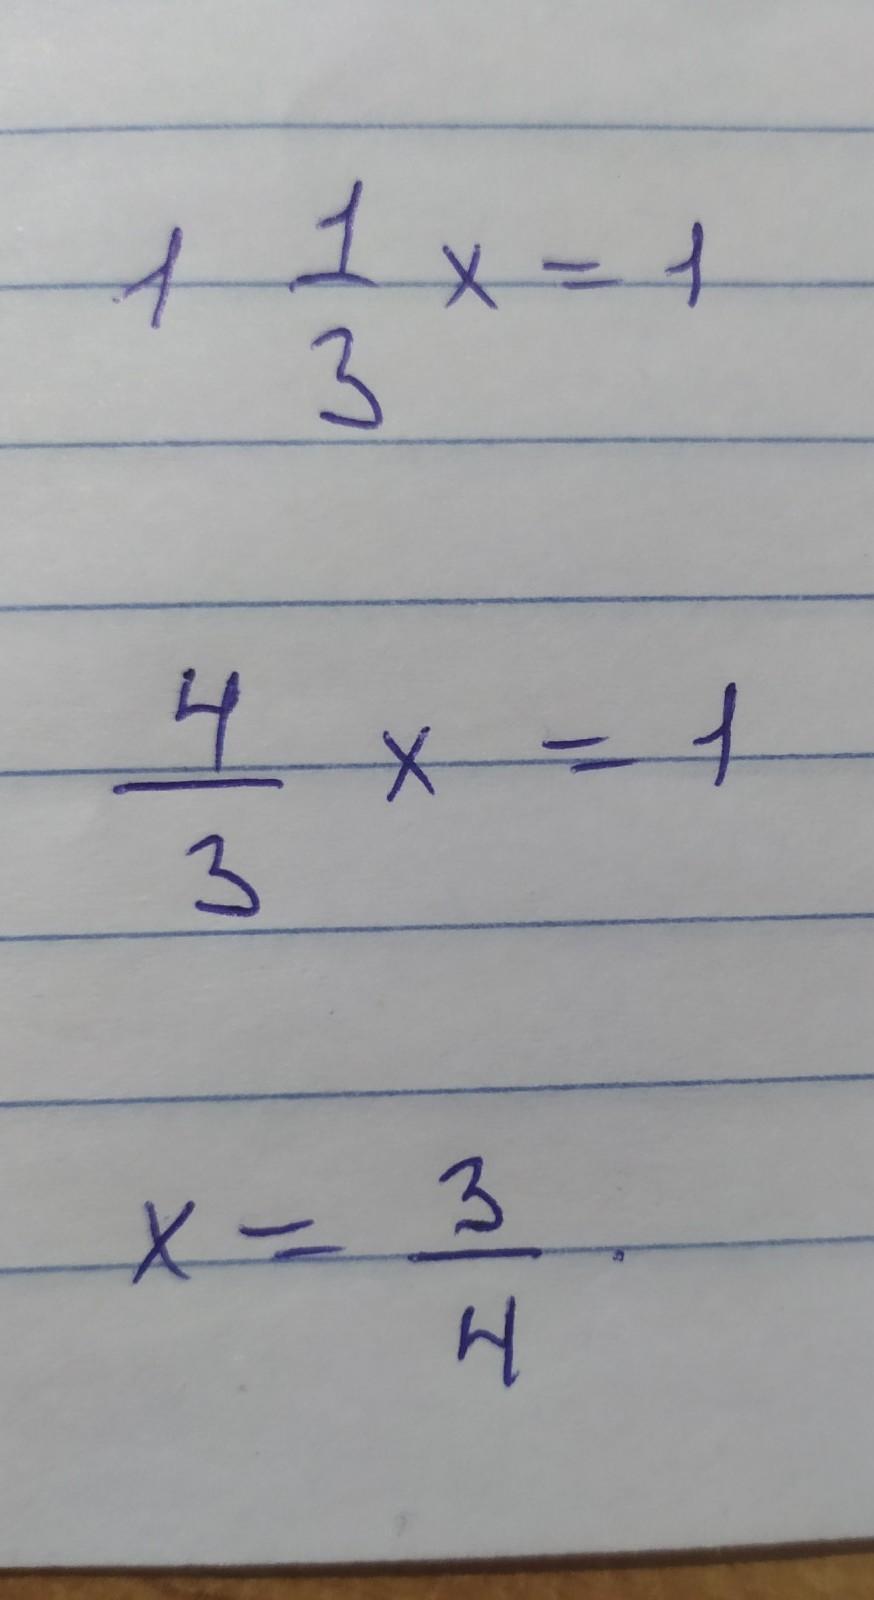 1 1/3 x = 1
4/3 x = 1
x = 3/4.